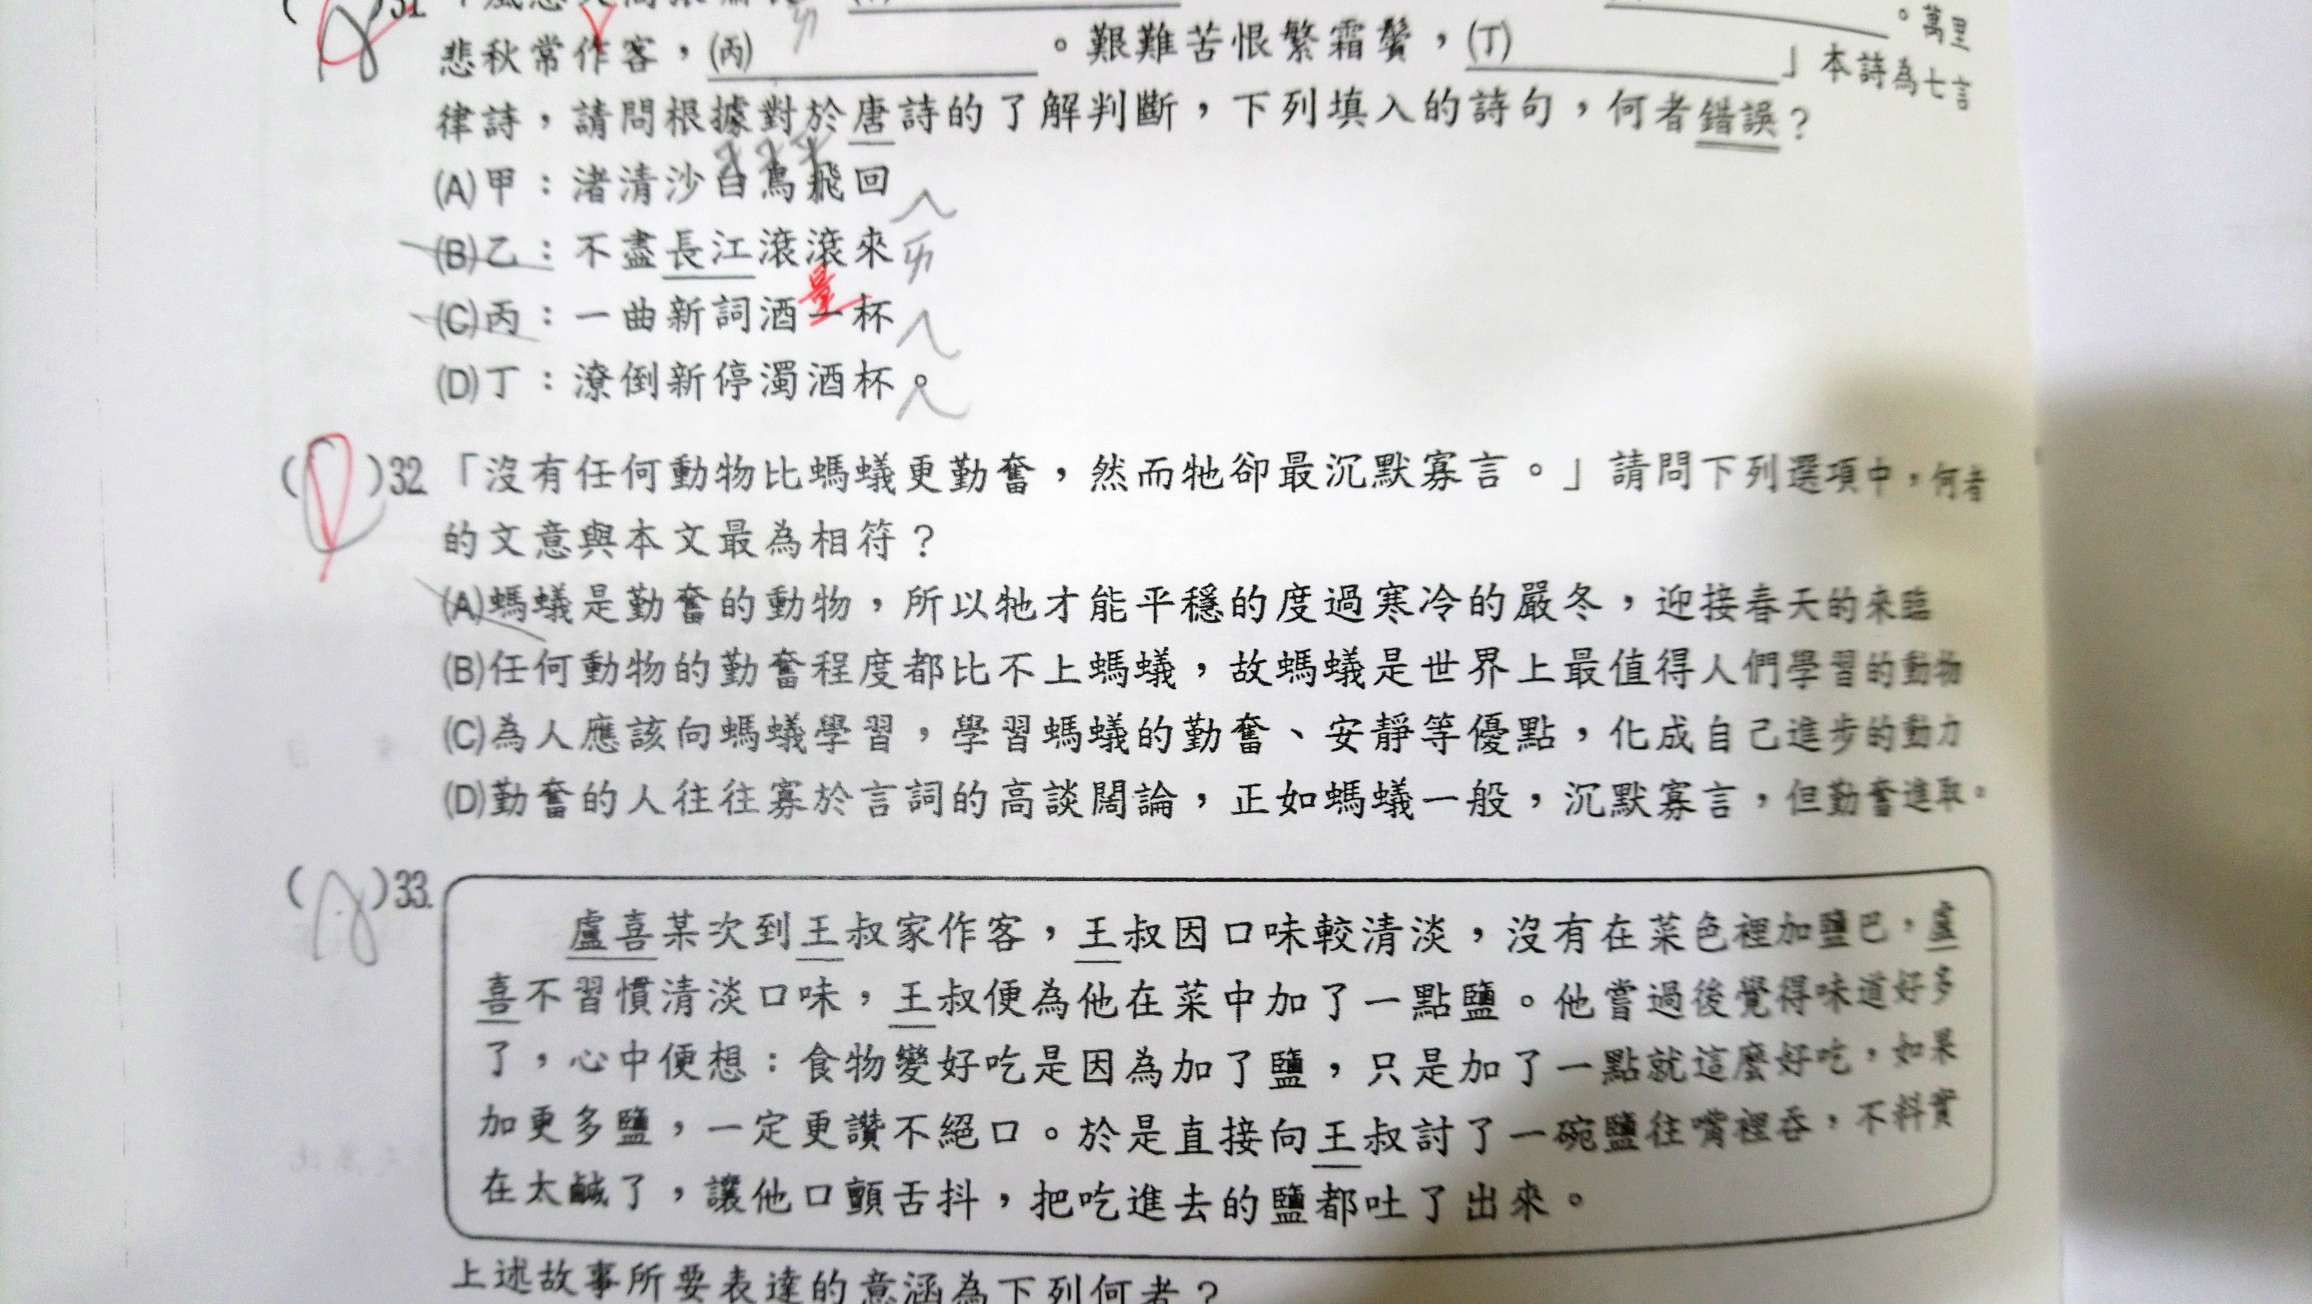 悲秋常作客，(丙)＿＿＿＿。艱難苦恨繁霜鬢，(丁)＿＿＿＿」本詩為七言
律詩，請問根據對於唐詩的了解判斷，下列填入的詩句，何者錯誤？
(A)甲：渚清沙白鳥飛回
(B)乙：不盡長江滾滾來
(C)丙：一曲新詞酒一杯
量
(D)丁：潦倒新停濁酒杯。
(D)32.「沒有任何動物比螞蟻更勤奮，然而牠卻最沉默寡言。」請問下列選項中，何者
的文意與本文最為相符？
(A)螞蟻是勤奮的動物，所以牠才能平穩的度過寒冷的嚴冬，迎接春天的來臨
(B)任何動物的勤奮程度都比不上螞蟻，故螞蟻是世界上最值得人們學習的動物
(C)為人應該向螞蟻學習，學習螞蟻的勤奮、安靜等優點，化成自己進步的動力
(D)勤奮的人往往寡於言詞的高談闊論，正如螞蟻一般，沉默寡言，但勤奮進取。
(A)33.
盧喜某次到王叔家作客，王叔因口味較清淡，沒有在菜色裡加鹽巴，盧
喜不習慣清淡口味，王叔便為他在菜中加了一點鹽。他嘗過後覺得味道好多
了，心中便想：食物變好吃是因為加了鹽，只是加了一點就這麼好吃，如果
加更多鹽，一定更讚不絕口。於是直接向王叔討了一碗鹽往嘴裡吞，不料實
在太鹹了，讓他口顫舌抖，把吃進去的鹽都吐了出來。
上述故事所要表達的意涵為下列何者？